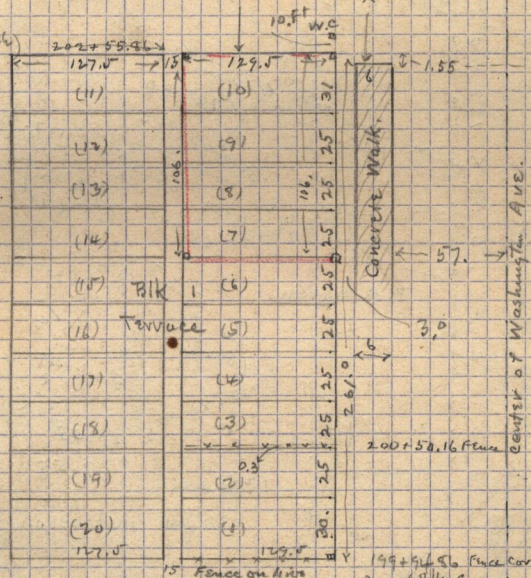 10.8± W.C
202+55.86
127.5 15 129.5 1.55
(11) (10) 31 6
(12) (9) 25
(13) 106. (8) 106. 25 Concrete Walk.
(14) (7) 25 57.
(15) Blk 1 (6) 25
(16) Terrace (5) 25 3.0
(17) (4) 25 261.0 6
(18) (3) 25
200+50.16 Fence
0.3
(19) (2) 25
(20) (1) 30.
127.5 129.5
15 Fence on line
199+94.86 Fence Cor
Center of Washington Ave.